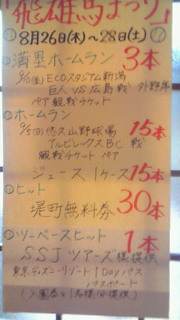 「飛雄馬まつり」
8月26日(木)～28日(土)
満塁ホームラン 3本
ECOスタジアム新潟
巨人 VS 広島戦 外野席
ペア 観戦チケット
ホームラン 15本
悠久山野球場
アルビレックスBC 戦
観戦チケット ペア
ジュース 1ケース 15本
ヒット 30本
滝町無料券
ツーベースヒット 1本
SSJツアーズ様提供
東京ディズニーリゾート 1Dayパス
パスポート